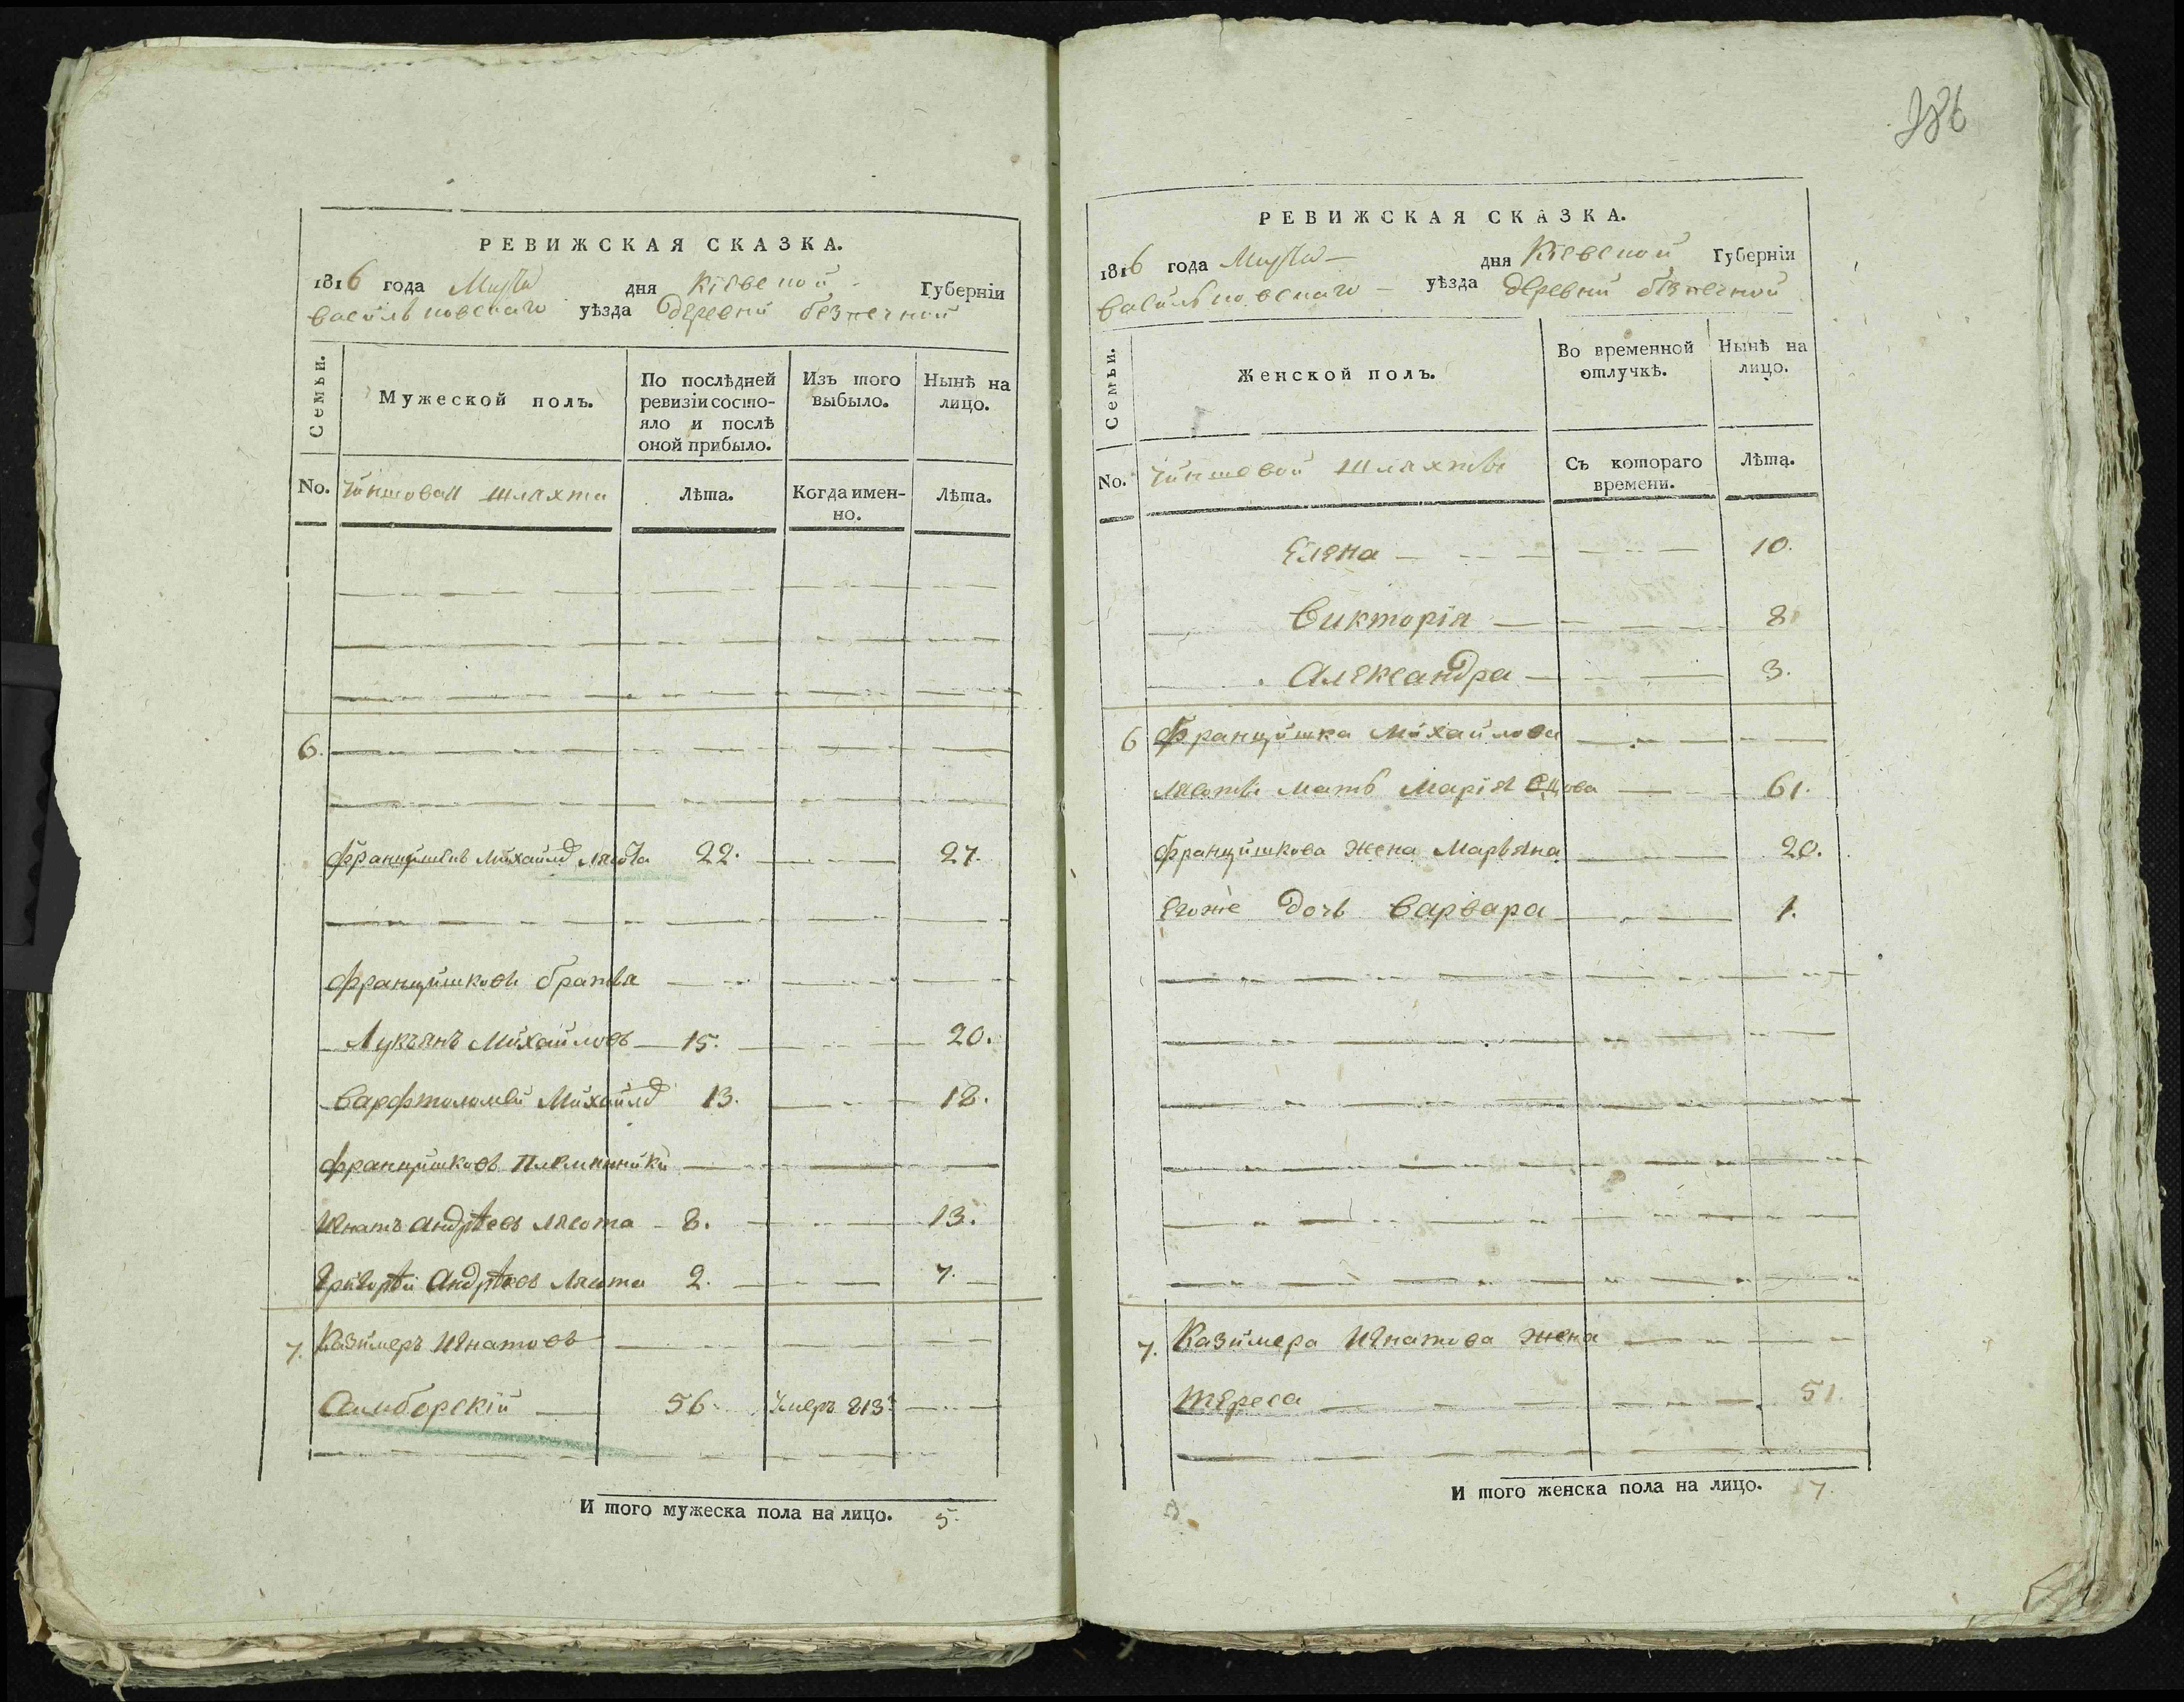 РЕВИЖСКАЯ СКАЗКА.
1816 года Марта дня Кіевской Губерніи
Васильковскаго уѣзда деревни безпечной
Семьи.
Мужеской полъ.
По послѣдней ревизіи состояло и послѣ оной прибыло.
Изъ того выбыло.
Нынѣ на лицо.
No. Чиншовая шляхта
Лѣта.
Когда именно.
Лѣта.
6.
Францишекъ Михайлов Лясота 22. 27.
Францишковы братья
Лукъянъ Михайловъ 15. 20.
Варфтоломѣй Михайлов 13. 18.
Францишковъ племянники
Игнатъ Андрѣевъ Лясота 8. 13.
Григорѣй Андрѣевъ Лясота 2. 7.
7. Казимеръ Игнатовъ
Самборскій 56. Умеръ 813
И того мужеска пола на лицо. 5.
386
РЕВИЖСКАЯ СКАЗКА.
1816 года Марта дня Кіевской Губерніи
Васильковскаго уѣзда деревни безпечной
Семьи.
Женской полъ.
Во временной отлучкѣ.
Нынѣ на лицо.
No. Чиншовой шляхты
Съ котораго времени.
Лѣта.
Елена 10.
Викторія 8
Александра 3.
6 Францишка Михайлова
Лясоты мать Марія 61.
Францишкова жена Марьяна 20.
Егоже дочь Варвара 1.
7. Казимера Игнатова жена
Тереса 51.
И того женска пола на лицо. 7.